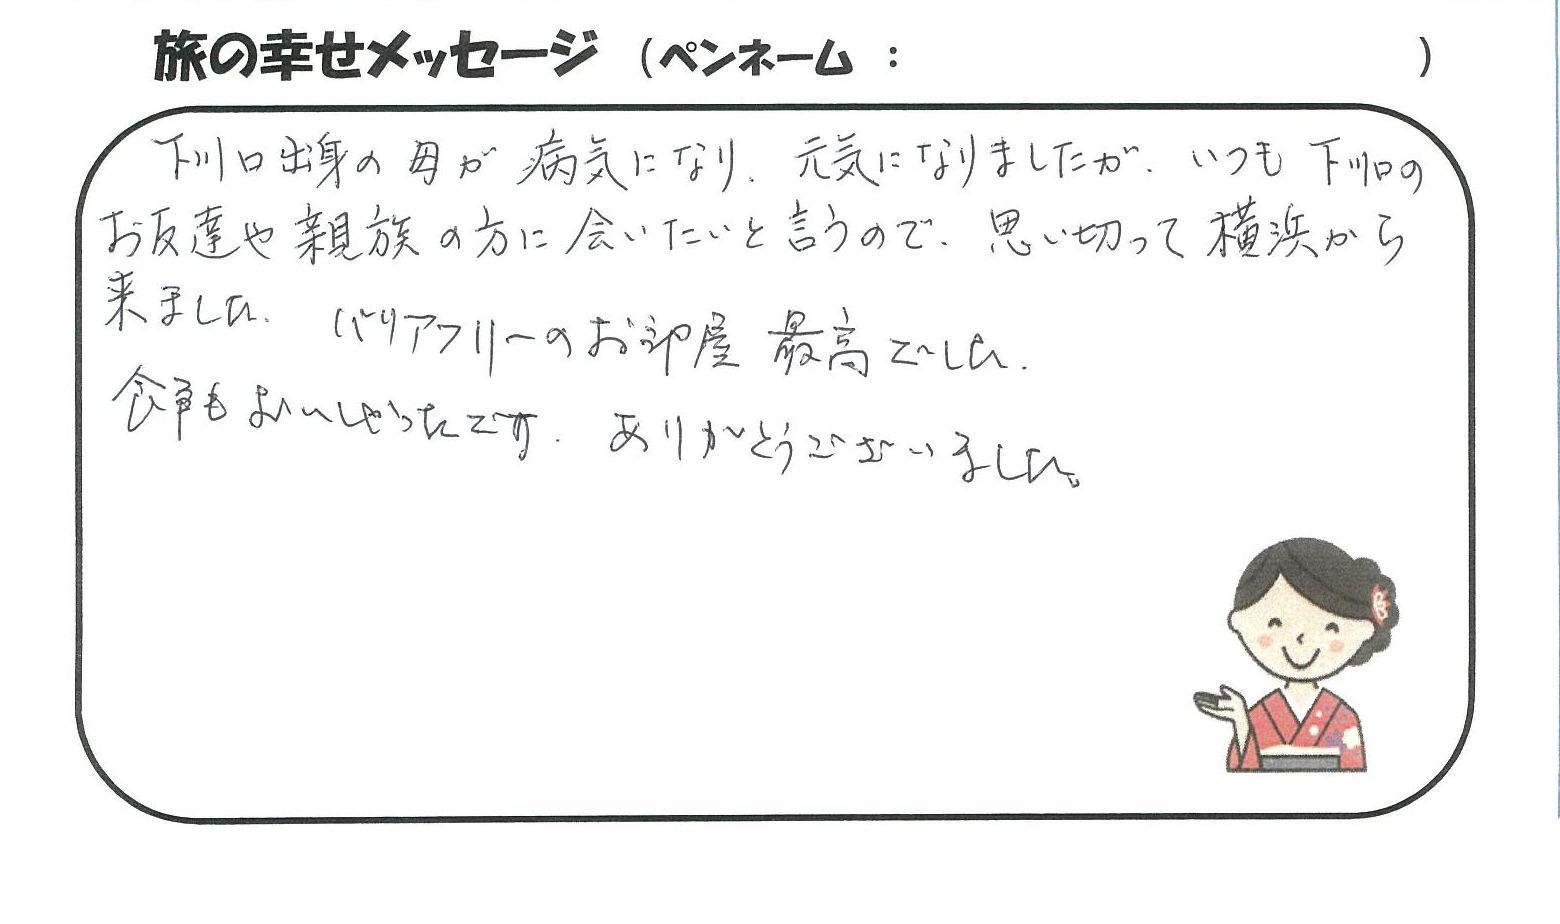 旅の幸せメッセージ (ペンネーム : )
下川口出身の母が病気になり、元気になりましたが、いつも下川口の
お友達や親族の方に会いたいと言うので、思い切って横浜から
来ました。バリアフリーのお部屋最高でした。
食事もおいしかったです。ありがとうございました。